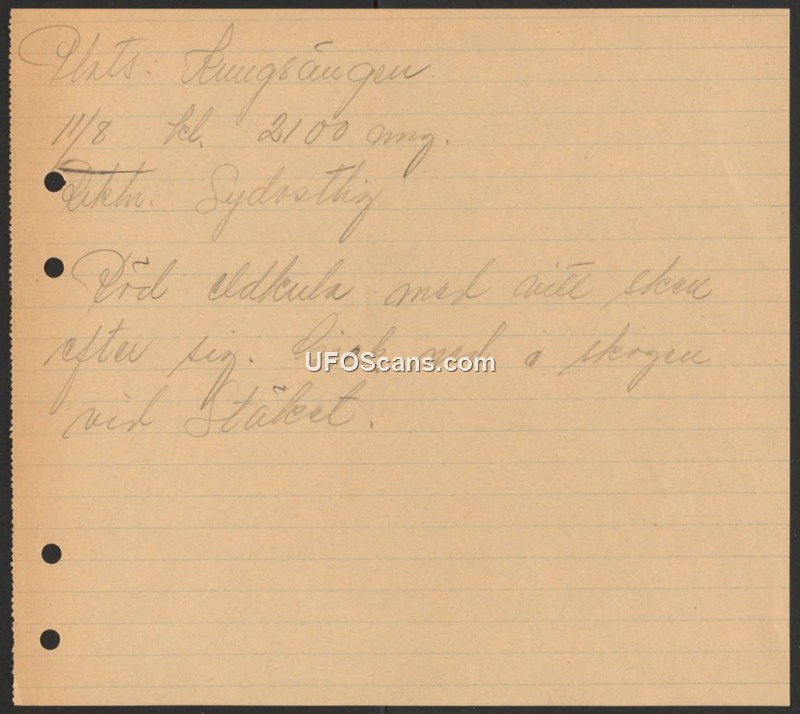 Plats: Kungsängen.
11/8 kl. 2100
Riktn. Sydostlig
Röd eldkula med vitt sken
efter sig. Gick ned i skogen
vid Stäket.
UFOScans.com